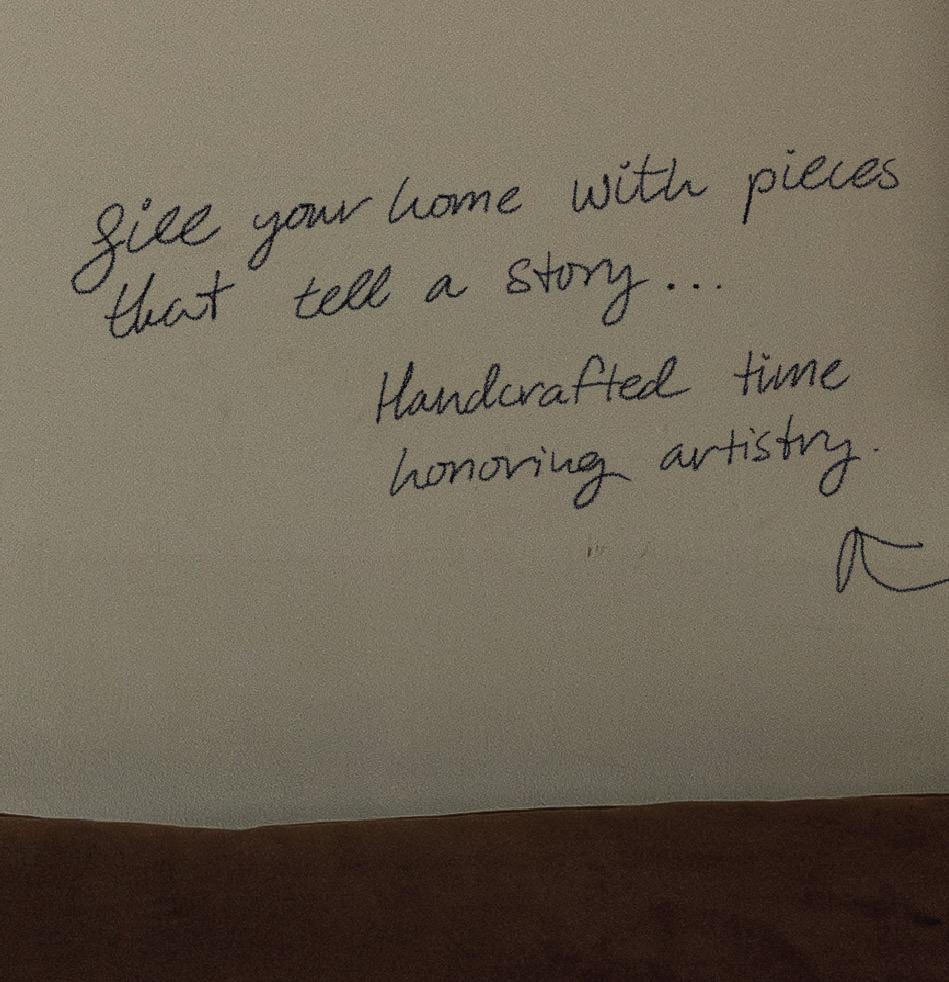 fill your home with pieces
that tell a story...
Handcrafted time
honoring artistry.